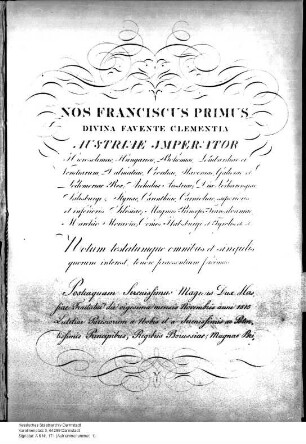 NOS FRANCISCUS PRIMUS
DIVINA FAVENTE CLEMENTIA
AUSTRIAE IMPERATOR
Hierosolimae, Hungariae, Bohemiae, Lombardiae et
Venetiarum, Dalmatiae, Croatiae, Slavoniae, Galiciae et
Lodomeriae Rex, Archidux Austriae, Dux Lotharingiae
Salisburgi, Styriae, Carinthiae, Carnioliae, superioris
et inferioris Silesiae, Magnus Princeps Transilvaniae
Marchio Moraviae, Comes Habsburgi et Tyrolis &c &c
Notum testatumque omnibus et singulis
quorum interest, tenore praesentium facimus.
Postquam Serenissimus Magnus Dux Has
siae Tractatui die vigesima mensis Novembris anni 1815
Lutetiae Parisiorum a Nobis et a Serenissimis ac Poten
tissimis Principibus, Regibus Borussiae, Magnae Bri